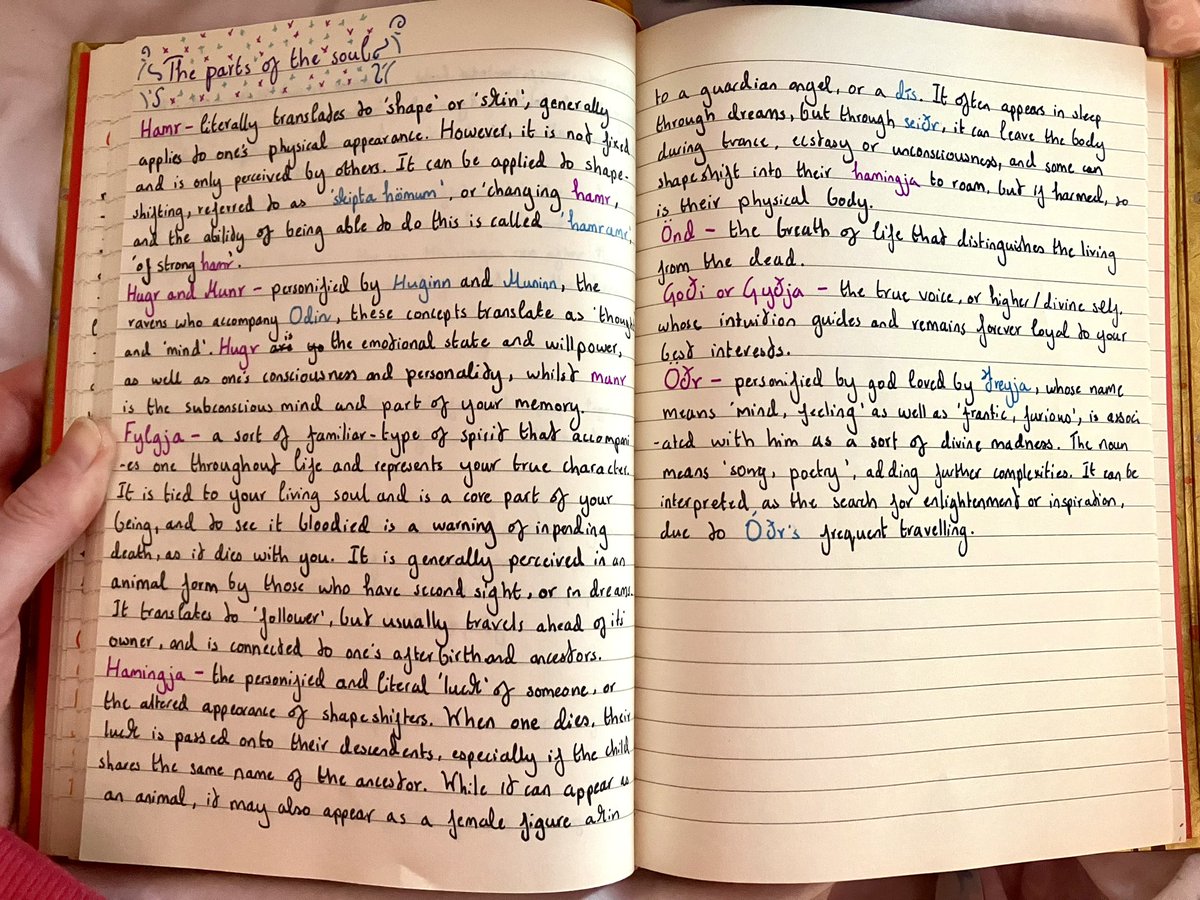 The parts of the soul
Hamr - literally translates to 'shape' or 'skin', generally
applies to one's physical appearance. However, it is not fixed
and is only perceived by others. It can be applied to shape-
shifting, referred to as 'skipta hömum', or 'changing hamr,
and the ability of being able to do this is called 'hamramr',
'of strong hamr'.
Hugr and Munr - personified by Huginn and Muninn, the
ravens who accompany Odin, these concepts translate as 'though
and 'mind'. Hugr is the emotional state and willpower,
as well as one's consciousness and personality, whilst munr
is the subconscious mind and part of your memory.
Fylgja - a sort of familiar-type of spirit that accompani
-es one throughout life and represents your true character.
It is tied to your living soul and is a core part of your
being, and to see it bloodied is a warning of inpending
death, as it dies with you. It is generally perceived in an
animal form by those who have second sight, or in dreams.
It translates to 'follower', but usually travels ahead of its
owner, and is connected to one's afterbirth and ancestors.
Hamingja - the personified and literal 'luck' of someone, or
the altered appearance of shapeshifters. When one dies, their
luck is passed onto their descendents, especially if the child
shares the same name of the ancestor. While it can appear as
an animal, it may also appear as a female figure akin
to a guardian angel, or a dís. It often appears in sleep
through dreams, but through seiðr, it can leave the body
during trance, ecstasy or unconsciousness, and some can
shapeshift into their hamingja to roam, but if harmed, so
is their physical body.
Önd - the breath of life that distinguishes the living
from the dead.
Goði or Gyðja - the true voice, or higher/divine self,
whose intuition guides and remains forever loyal to your
best interests.
Óðr - personified by god loved by Freyja, whose name
means 'mind, feeling' as well as 'frantic, furious', is associ
-ated with him as a sort of divine madness. The noun
means 'song, poetry', adding further complexities. It can be
interpreted as the search for enlightenment or inspiration,
due to Óðr's frequent travelling.